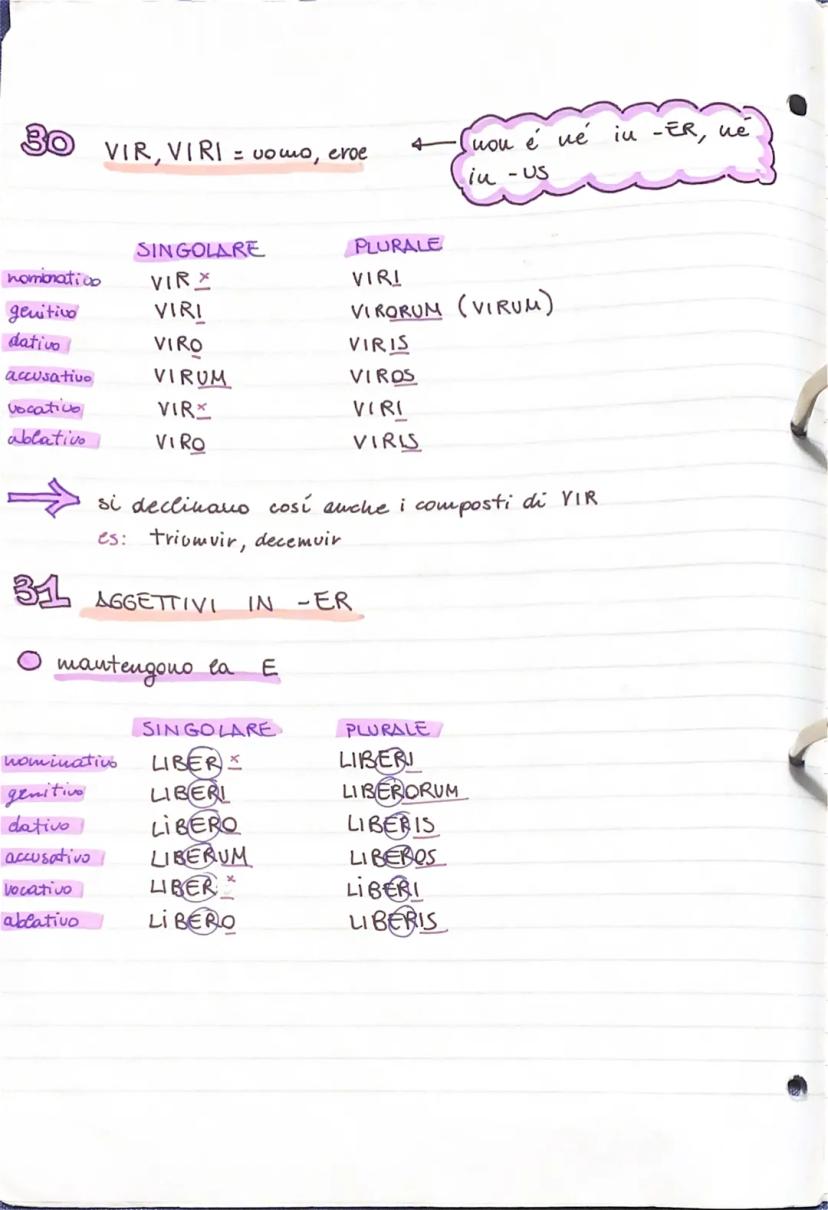 30 VIR, VIRI = uomo, eroe ← non é né in -ER, né
in -US
SINGOLARE PLURALE
nominativo VIR× VIRI
genitivo VIRI VIRORUM (VIRUM)
dativo VIRO VIRIS
accusativo VIRUM VIROS
vocativo VIR× VIRI
ablativo VIRO VIRIS
⇒ si declinano cosí anche i composti di VIR
es: triumvir, decemvir
31 AGGETTIVI IN -ER
mantengono la E
SINGOLARE PLURALE
nominativo LIBER× LIBERI
genitivo LIBERI LIBERORUM
dativo LIBERO LIBERIS
accusativo LIBERUM LIBEROS
vocativo LIBER× LIBERI
ablativo LIBERO LIBERIS